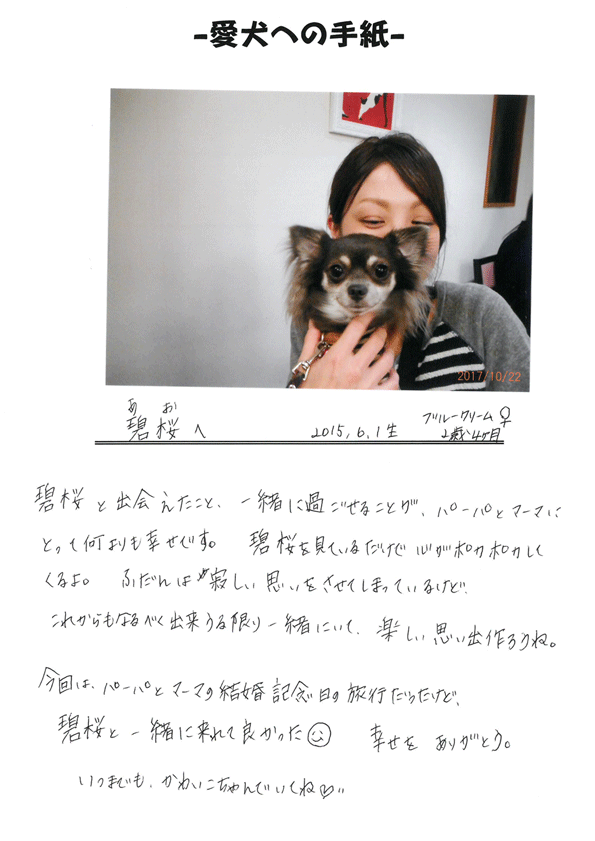 -愛犬への手紙-
2017/10/22
あお
碧桜へ 2015,6,1生 ブルークリーム♀
2歳4ヶ月
碧桜と出会えたこと、一緒に過ごせることが、パーパとマーマに
とって何よりも幸せです。 碧桜を見ているだけで心がポカポカして
くるよ。 ふだんは寂しい思いをさせてしまっているけど、
これからもなるべく出来うる限り一緒にいて、楽しい思い出作ろうね。
今回は、パーパとマーマの結婚記念日の旅行だったけど、
碧桜と一緒に来れて良かった☺ 幸せを ありがとう。
いつまでも、かわいこちゃんでいてね♡